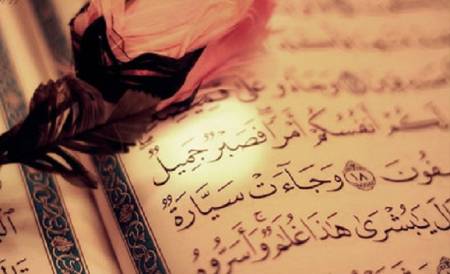 وَجَآءُو عَلَىٰ قَمِيصِهِ
لَكُمْ أَنفُسُكُمْ أَمْرًا فَصَبْرٌ جَمِيلٌ
ـفُونَ ١٨ وَجَآءَتْ سَيَّارَةٌ
ـالَ يَٰبُشْرَىٰ هَٰذَا غُلَٰمٌ وَأَسَرُّوهُ